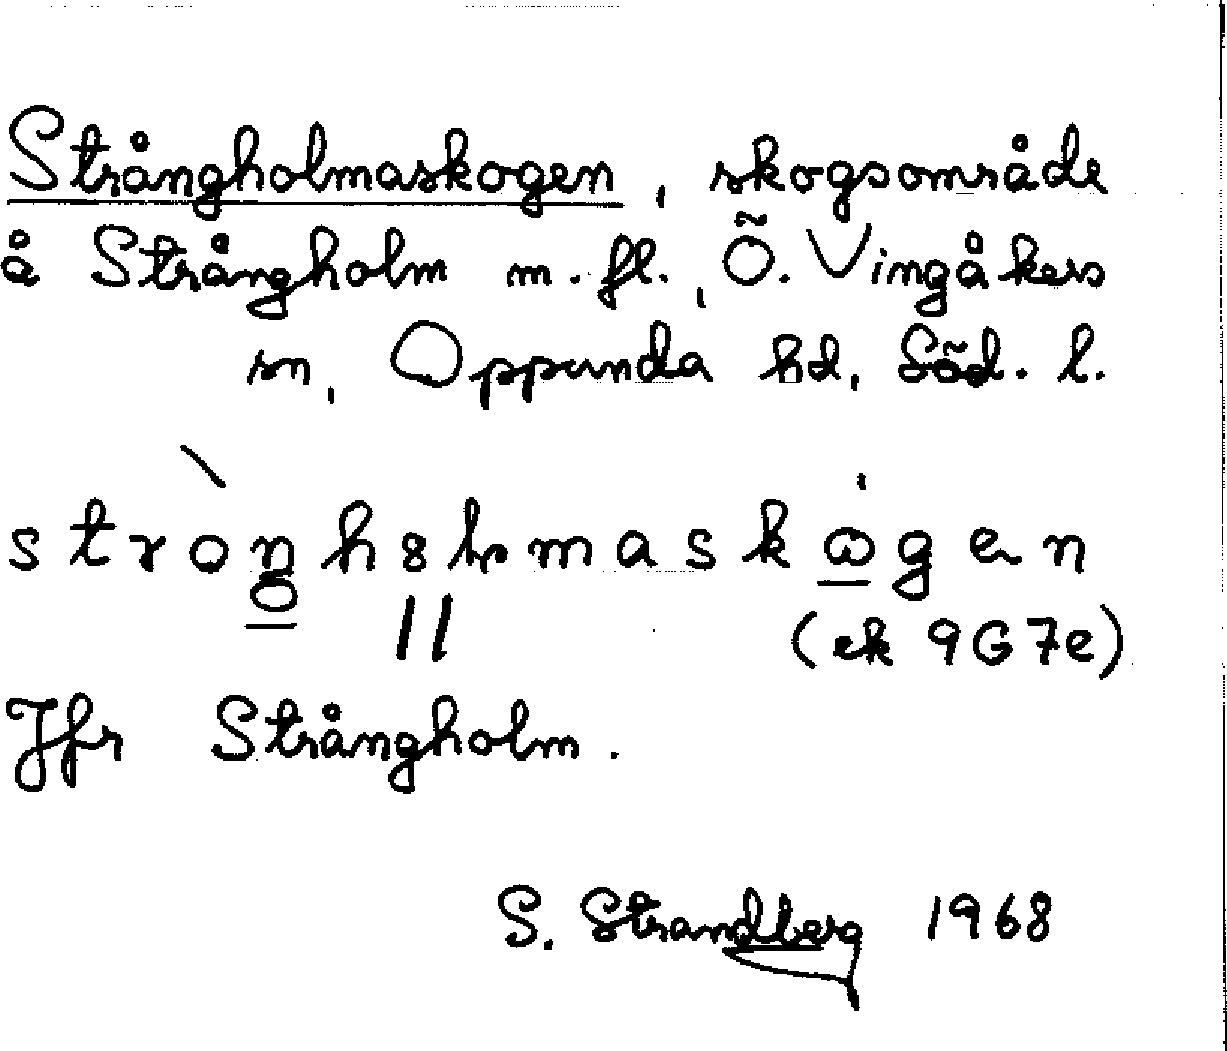 Strångholmaskogen, skogsområde
å Strångholm m. fl., Ö. Vingåkers
sn, Oppunda hd, Söd. l.
(ek 9G7e)
Jfr Strångholm.
S. Strandberg 1968